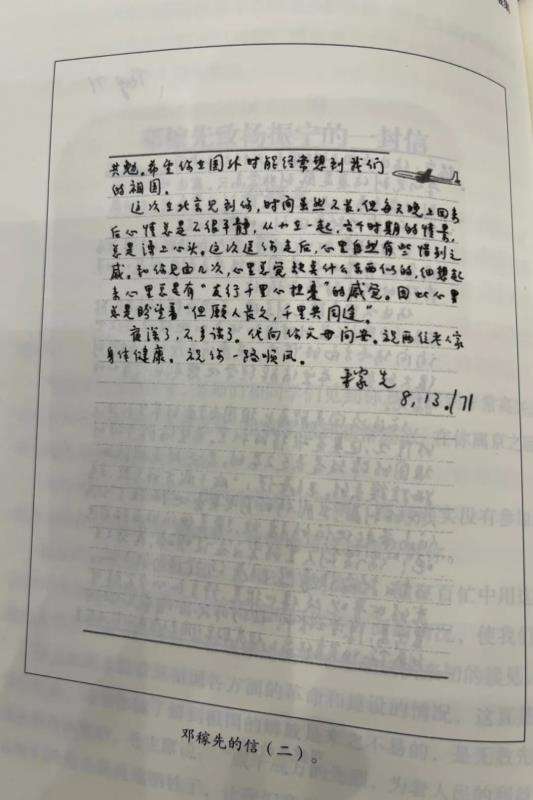 共勉。希望你在国外时能经常想到我们
的祖国。
这次在北京见到你,时间虽然不长,但每天晚上回来
后心情总是不很平静,从小在一起,各个时期的情景,
总是涌上心头。这次送你走后,心里自然有些惜别之
感。和你见面几次,心里总觉缺点什么东西似的,细想起
来心里总是有“友行千里心担忧”的感觉。因此心里
总是盼望着“但愿人长久,千里共同途”。
夜深了,不多谈了。代向你父母问安。祝两位老人家
身体健康。祝你一路顺风。
稼先
8.13./71
邓稼先的信(二)。